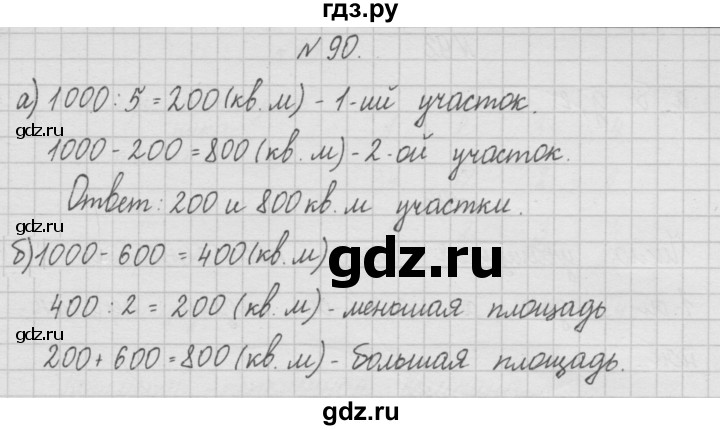 гдз.ру
№ 90.
а) 1000 : 5 = 200 (кв. м) - 1-ий участок.
gdz.ru
1000 - 200 = 800 (кв. м) - 2-ой участок.
Ответ: 200 и 800 кв. м участки.
gdz.ru
б) 1000 - 600 = 400 (кв. м)
gdz.ru
400 : 2 = 200 (кв. м) - меньшая площадь
gdz.ru
200 + 600 = 800 (кв. м) - большая площадь.
gdz.ru